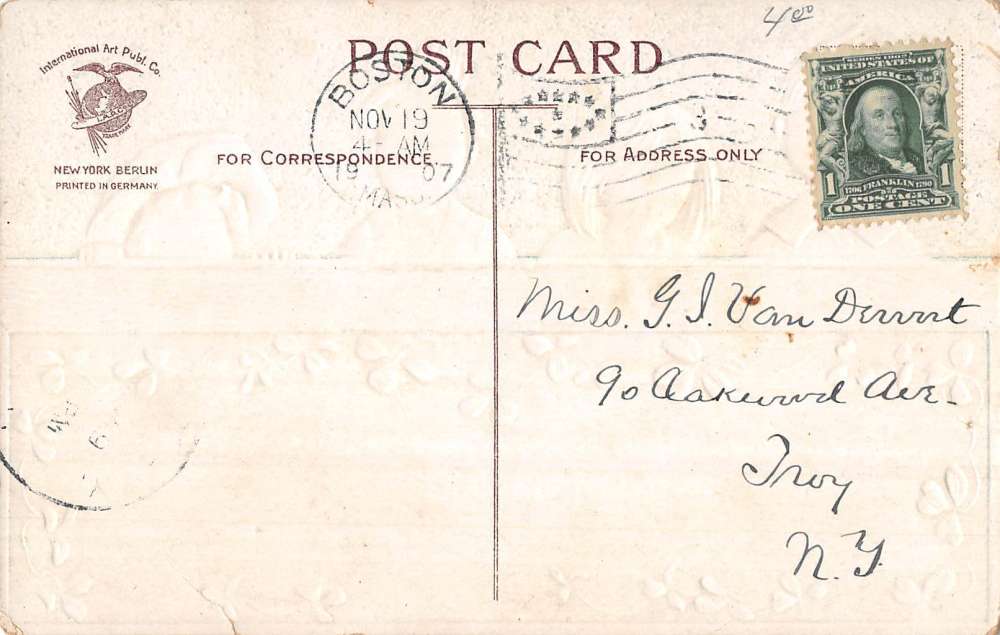 4 00
International Art Publ. Co.
TRADE MARK
NEW YORK BERLIN
PRINTED IN GERMANY
POST CARD
FOR CORRESPONDENCE
FOR ADDRESS ONLY
BOSTON
NOV 19
4- AM
19 07
MASS.
SERIES 1902
UNITED STATES OF
AMERICA
1 1706 FRANKLIN 1790 1
POSTAGE
ONE CENT
Miss. G. I. Van Dervort
90 Oakwood Ave-
Troy
N.Y.